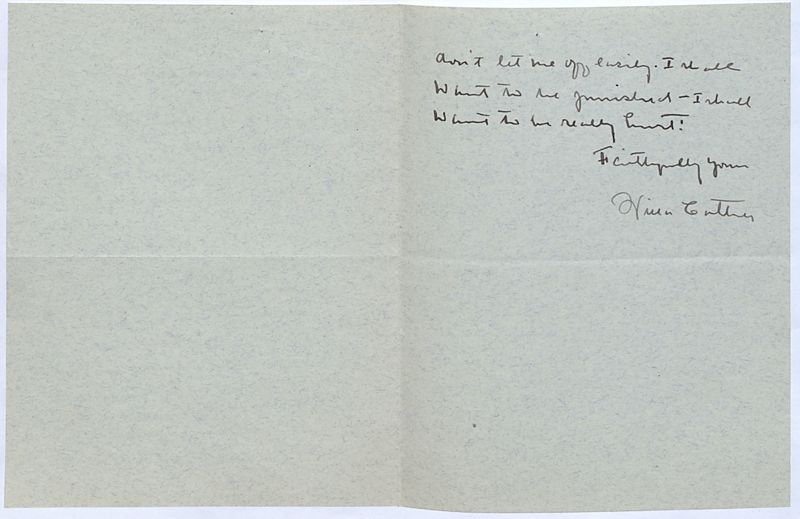 don't let me off easily. I shall
want to be punished – I shall
want to be really hurt!
Faithfully yours
Willa Cather